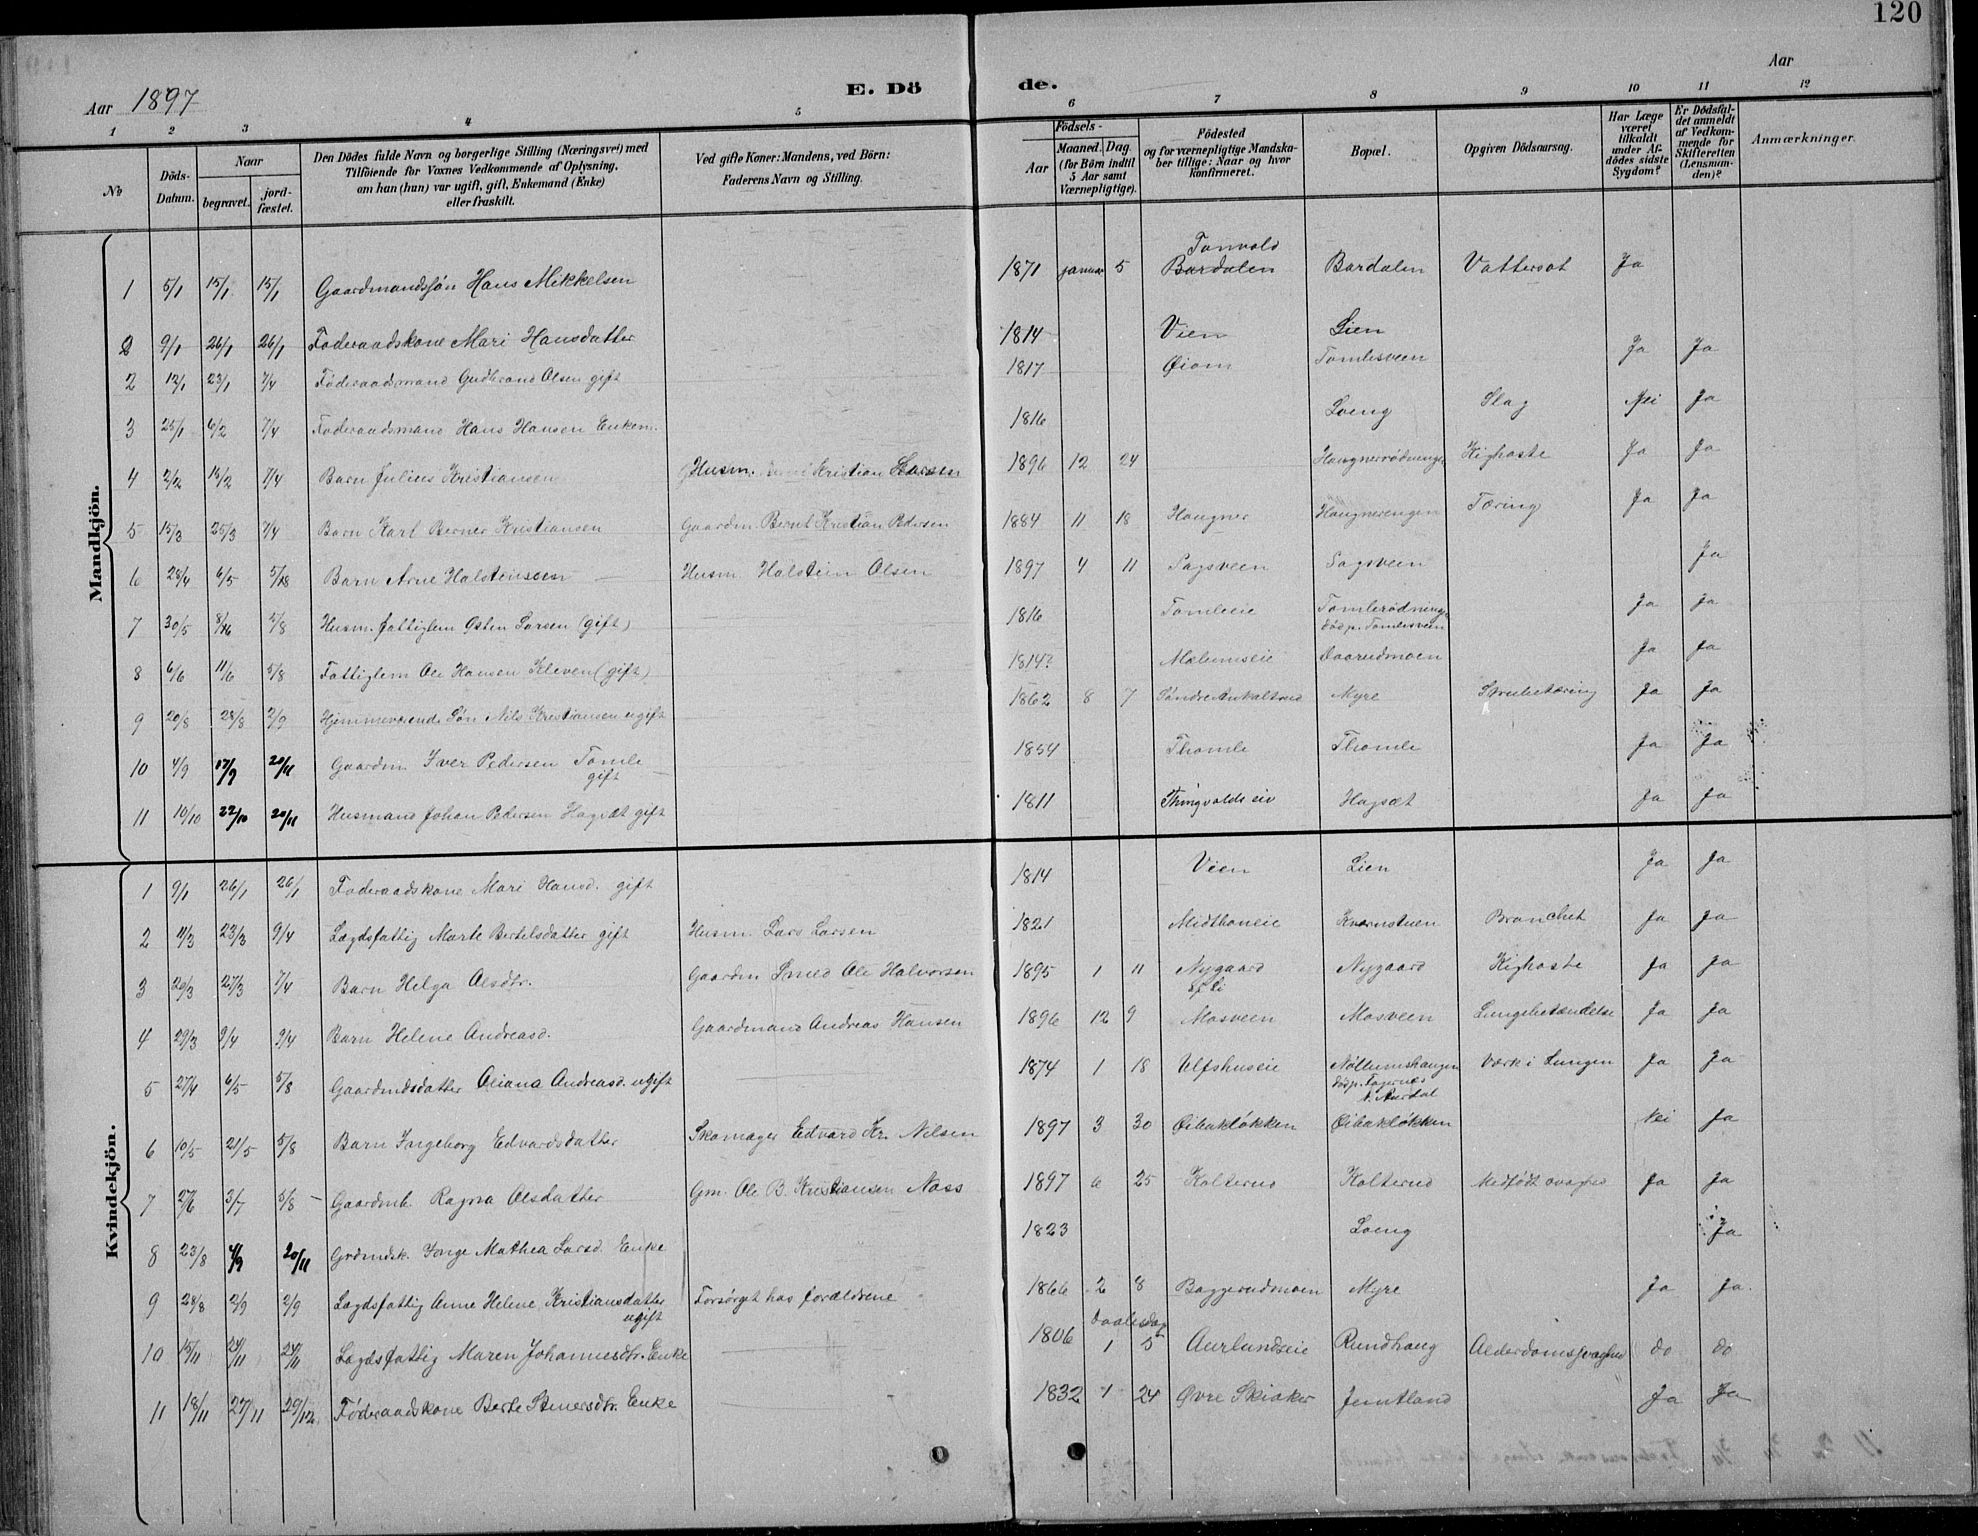 120
Aar 1897
E. Döde.
Aar
1 2 3 4 5 6 7 8 9 10 11 12
No
Döds-Datum.
Naar
begravet.
jord-fæstet.
Den Dödes fulde Navn og borgerlige Stilling (Næringsvei) med
Tilföiende for Voxnes Vedkommende af Oplysning,
om han (hun) var ugift, gift, Enkemand (Enke)
eller fraskilt.
Ved gifte Koner: Mandens, ved Börn:
Faderens Navn og Stilling.
Födsels-
Aar
Maaned. Dag.
(for Börn indtil
5 Aar samt
Værnepligtige).
Födested
og for værnepligtige Mandska-
ber tillige: Naar og hvor
konfirmeret.
Bopæl.
Opgiven Dödsaarsag.
Har Læge
været
tilkaldt
under Af-
dödes sidste
Sygdom?
Er Dödsfal-
det anmeldt
af Vedkom-
mende for
Skifteretten
(Lensman-
den)?
Anmærkninger.
Mandkjön.
1 5/1 15/1 15/1 Gaardmandssön Hans Mikkelsen 1871 januar 5 Tonvold Bardalen Bardalen Vattersot Ja
2 9/1 26/1 26/1 Föderaadskone Mari Hansdatter 1814 Vien Lien
2 12/1 23/1 7/4 Föderaadsmand Gudbrand Olsen gift 1817 Øiom Tomlesveen Ja Ja
3 25/1 6/2 7/4 Föderaadsmand Hans Hansen Enkem. 1816 Loeng Slag Nei Ja
4 2/2 13/2 7/4 Barn Julius Kristiansen Husm. Kristian Larsen 1896 12 24 Kighoste Ja Ja
5 15/3 25/3 7/4 Barn Karl Berner Kristiansen Gaardm. Bernt Kristian Pedersen 1884 11 18 Haugner Haugnerengen Tæring Ja Ja
6 28/4 6/5 5/8 Barn Arne Halsteinsen Husm. Halstein Olsen 1897 4 11 Sagsveen Sagsveen Ja
7 30/5 8/6 5/8 Husm. fattiglem Østen Larsen (gift) 1816 Tomleeie Tomlerødningen
dødsp. Tomlesveen Ja Ja
8 6/6 11/6 5/8 Fattiglem Ole Hansen Kleven (gift) 1814? Mælumseie Daarudmoen Ja Ja
9 20/8 28/8 2/9 Hjemmeværende Søn Nils Kristiansen ugift 1862 8 7 Søndre Aukaltsrud Myre Strubetæring Ja Ja
10 4/9 17/9 20/11 Gaardm. Iver Pedersen Tomle
gift 1854 Thomle Thomle Ja Ja
11 10/10 22/10 20/11 Husmand Johan Pedersen Hagsæt gift 1811 Thingvoldseie Hagsæt Ja Ja
Kvindekjön.
1 9/1 26/1 26/1 Föderaadskone Mari Hansd. gift 1814 Vien Lien Ja Ja
2 11/3 23/3 9/4 Lægdsfattig Marte Bertelsdatter gift Husm. Lars Larsen 1821 Midthoneie Kvernstuen Bronchet Ja Ja
3 20/3 27/3 7/4 Barn Helga Olsdtr. Gaardm. Smed Ole Halvorsen 1895 1 11 Nygaard
Sf Li Nygaard Kighoste Ja Ja
4 29/3 9/4 9/4 Barn Helene Andreasd. Gaardmand Andreas Hansen 1896 12 9 Mosveen Mosveen Lungebetændelse Ja Ja
5 27/4 6/5 5/8 Gaardmdsdatter Oliana Andreasd. ugift 1874 1 18 Ulfshuseie Nöllumshaugen
dödsp. Fagernæs
N. Aurdal Værk i Lungen Ja Ja
6 10/5 21/5 5/8 Barn Ingeborg Edvardsdatter Skomager Edvard Kr. Nilsen 1897 3 30 Øibakløkken Øibakløkken Nei Ja
7 27/6 3/7 5/8 Gaardmb. Ragna Olsdatter Gm. Ole B. Kristiansen Næss 1897 6 25 Kolterud Kolterud Medfødt svaghed Ja Ja
8 23/8 4/9 20/11 Grdmdsk. Inge Mathea Larsd. Enke 1823 Loeng Ja
9 28/8 2/9 2/9 Lægdsfattig Anne Helene Kristiansdatter
ugift Forsørget hos forældrene 1866 2 8 Baggerudmoen Myre Ja Ja.
10 15/11 24/11 24/11 Lægdsfattig Maren Johannesdtr. Enke 1806 daabsdag
1 5 Aurlundseie Rundhaug Alderdomssvaghed do do
11 18/11 27/11 29/12 Føderaadskone Berte Stenersdtr. Enke 1832 1 24 Øvre Skiaker Jemtland Ja Ja